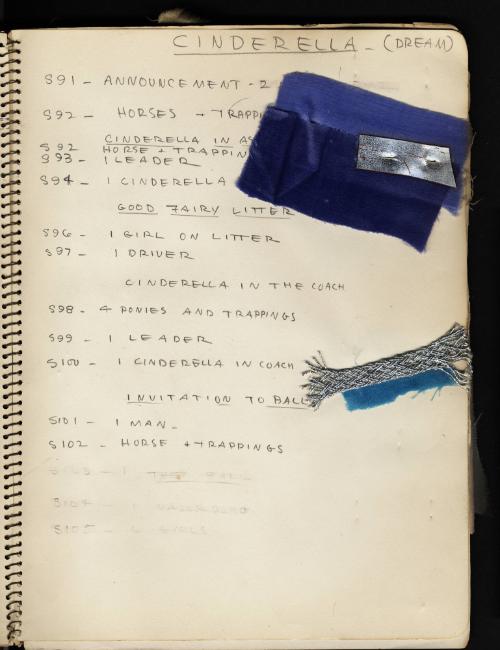 CINDERELLA - (DREAM)
S91 - ANNOUNCEMENT - 2
S92 - HORSES + TRAPPI
CINDERELLA IN AS
S92 HORSE + TRAPPIN
S93 - 1 LEADER
S94 - 1 CINDERELLA
GOOD FAIRY LITTER
S96 - 1 GIRL ON LITTER
S97 - 1 DRIVER
CINDERELLA IN THE COACH
S98 - 4 PONIES AND TRAPPINGS
S99 - 1 LEADER
S100 - 1 CINDERELLA IN COACH
INVITATION TO BALL
S101 - 1 MAN -
S102 - HORSE + TRAPPINGS
S103 - 1
THE BALL
S104 - 1
S105 - 6 GIRLS